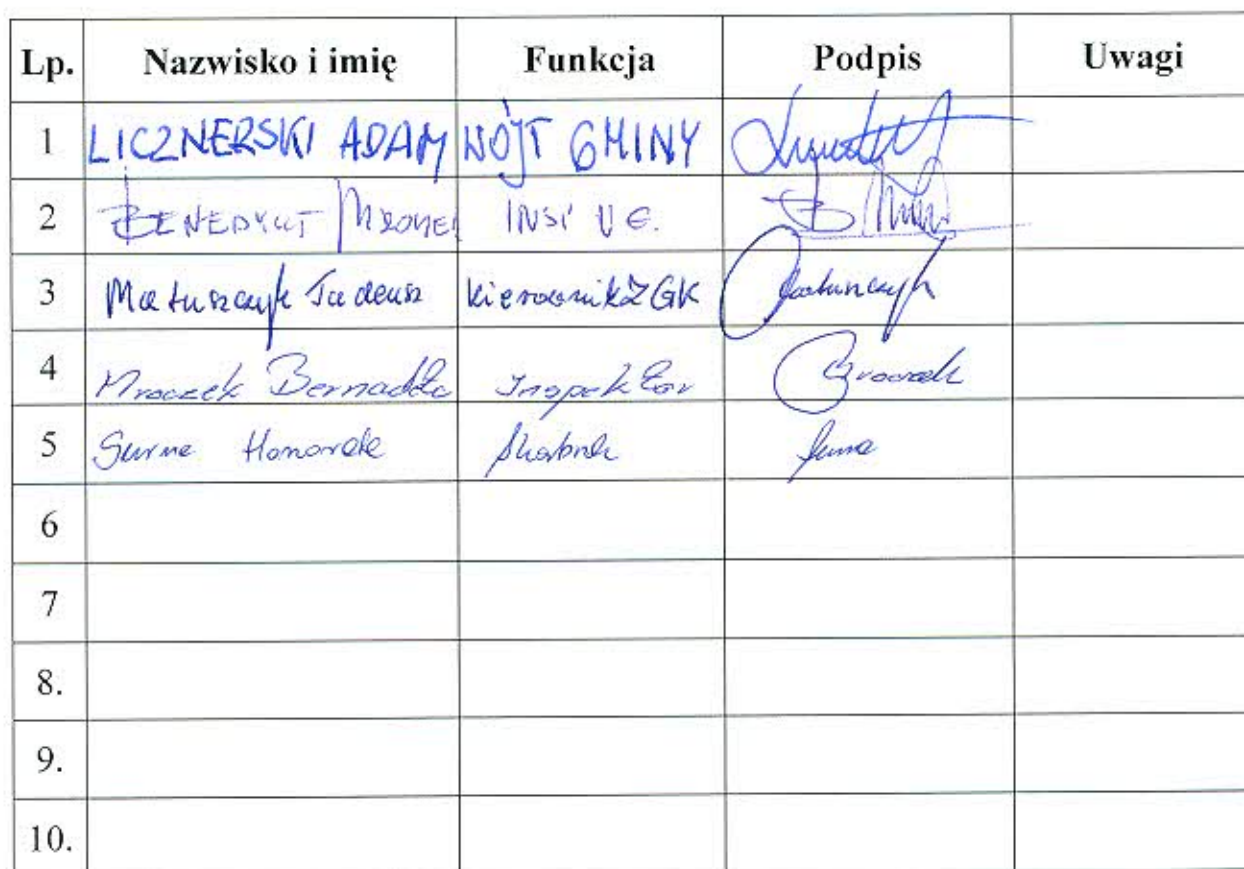 Lp. Nazwisko i imię Funkcja Podpis Uwagi
1 LICZNERSKI ADAM WÓJT GMINY
2 BENEDYKT
3 Matuszczyk Tadeusz kierownik ZGK Matuszczyk
4 Mroczek Bernadeta Inspektor Mroczek
5 Surma Honorata Skarbnik Surma
6
7
8.
9.
10.